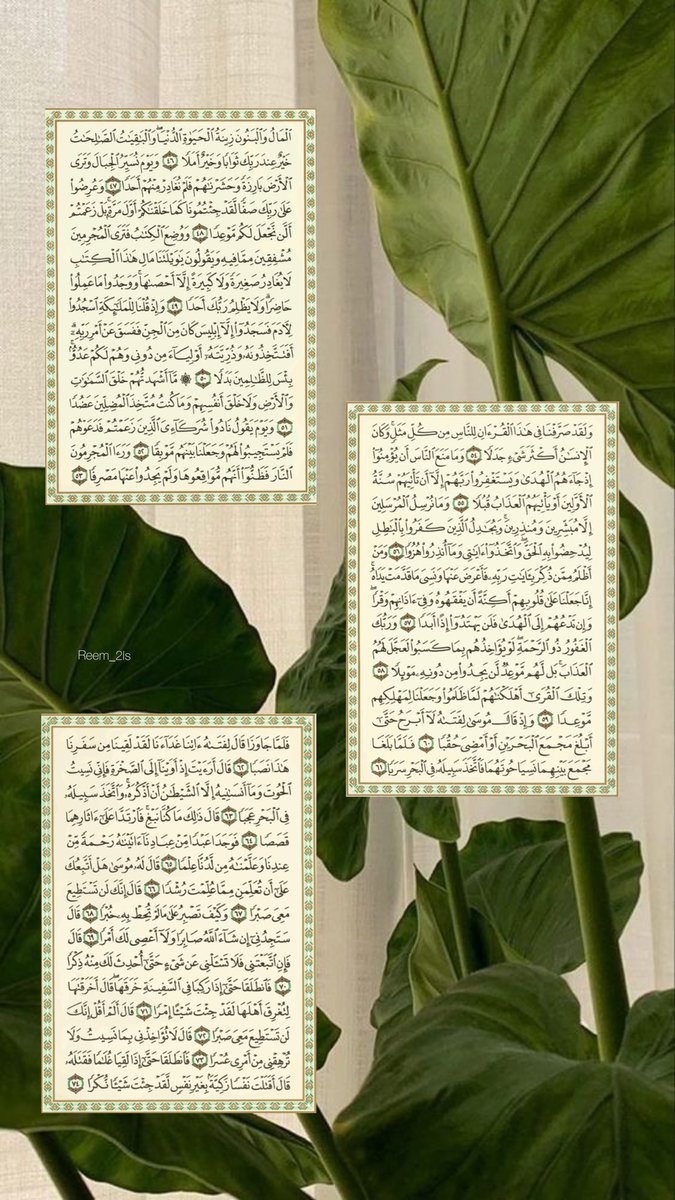 ٱلْمَالُ وَٱلْبَنُونَ زِينَةُ ٱلْحَيَوٰةِ ٱلدُّنْيَا ۖ وَٱلْبَـٰقِيَـٰتُ ٱلصَّـٰلِحَـٰتُ
خَيْرٌ عِندَ رَبِّكَ ثَوَابًا وَخَيْرٌ أَمَلًا ٤٦ وَيَوْمَ نُسَيِّرُ ٱلْجِبَالَ وَتَرَى
ٱلْأَرْضَ بَارِزَةً وَحَشَرْنَـٰهُمْ فَلَمْ نُغَادِرْ مِنْهُمْ أَحَدًا ٤٧ وَعُرِضُوا۟
عَلَىٰ رَبِّكَ صَفًّا لَّقَدْ جِئْتُمُونَا كَمَا خَلَقْنَـٰكُمْ أَوَّلَ مَرَّةٍۭ ۚ بَلْ زَعَمْتُمْ
أَلَّن نَّجْعَلَ لَكُم مَّوْعِدًا ٤٨ وَوُضِعَ ٱلْكِتَـٰبُ فَتَرَى ٱلْمُجْرِمِينَ
مُشْفِقِينَ مِمَّا فِيهِ وَيَقُولُونَ يَـٰوَيْلَتَنَا مَالِ هَـٰذَا ٱلْكِتَـٰبِ
لَا يُغَادِرُ صَغِيرَةً وَلَا كَبِيرَةً إِلَّآ أَحْصَىٰهَا ۚ وَوَجَدُوا۟ مَا عَمِلُوا۟
حَاضِرًا ۗ وَلَا يَظْلِمُ رَبُّكَ أَحَدًا ٤٩ وَإِذْ قُلْنَا لِلْمَلَـٰٓئِكَةِ ٱسْجُدُوا۟
لِـَٔادَمَ فَسَجَدُوٓا۟ إِلَّآ إِبْلِيسَ كَانَ مِنَ ٱلْجِنِّ فَفَسَقَ عَنْ أَمْرِ رَبِّهِۦٓ ۗ
أَفَتَتَّخِذُونَهُۥ وَذُرِّيَّتَهُۥٓ أَوْلِيَآءَ مِن دُونِى وَهُمْ لَكُمْ عَدُوٌّۢ ۚ
بِئْسَ لِلظَّـٰلِمِينَ بَدَلًا ٥٠ ۞ مَّآ أَشْهَدتُّهُمْ خَلْقَ ٱلسَّمَـٰوَٰتِ
وَٱلْأَرْضِ وَلَا خَلْقَ أَنفُسِهِمْ وَمَا كُنتُ مُتَّخِذَ ٱلْمُضِلِّينَ عَضُدًا
٥١ وَيَوْمَ يَقُولُ نَادُوا۟ شُرَكَآءِىَ ٱلَّذِينَ زَعَمْتُمْ فَدَعَوْهُمْ
فَلَمْ يَسْتَجِيبُوا۟ لَهُمْ وَجَعَلْنَا بَيْنَهُم مَّوْبِقًا ٥٢ وَرَءَا ٱلْمُجْرِمُونَ
ٱلنَّارَ فَظَنُّوٓا۟ أَنَّهُم مُّوَاقِعُوهَا وَلَمْ يَجِدُوا۟ عَنْهَا مَصْرِفًا ٥٣
وَلَقَدْ صَرَّفْنَا فِى هَـٰذَا ٱلْقُرْءَانِ لِلنَّاسِ مِن كُلِّ مَثَلٍ ۚ وَكَانَ
ٱلْإِنسَـٰنُ أَكْثَرَ شَىْءٍ جَدَلًا ٥٤ وَمَا مَنَعَ ٱلنَّاسَ أَن يُؤْمِنُوٓا۟
إِذْ جَآءَهُمُ ٱلْهُدَىٰ وَيَسْتَغْفِرُوا۟ رَبَّهُمْ إِلَّآ أَن تَأْتِيَهُمْ سُنَّةُ
ٱلْأَوَّلِينَ أَوْ يَأْتِيَهُمُ ٱلْعَذَابُ قُبُلًا ٥٥ وَمَا نُرْسِلُ ٱلْمُرْسَلِينَ
إِلَّا مُبَشِّرِينَ وَمُنذِرِينَ ۚ وَيُجَـٰدِلُ ٱلَّذِينَ كَفَرُوا۟ بِٱلْبَـٰطِلِ
لِيُدْحِضُوا۟ بِهِ ٱلْحَقَّ ۖ وَٱتَّخَذُوٓا۟ ءَايَـٰتِى وَمَآ أُنذِرُوا۟ هُزُوًا ٥٦ وَمَنْ
أَظْلَمُ مِمَّن ذُكِّرَ بِـَٔايَـٰتِ رَبِّهِۦ فَأَعْرَضَ عَنْهَا وَنَسِىَ مَا قَدَّمَتْ يَدَاهُ ۚ
إِنَّا جَعَلْنَا عَلَىٰ قُلُوبِهِمْ أَكِنَّةً أَن يَفْقَهُوهُ وَفِىٓ ءَاذَانِهِمْ وَقْرًا ۖ
وَإِن تَدْعُهُمْ إِلَى ٱلْهُدَىٰ فَلَن يَهْتَدُوٓا۟ إِذًا أَبَدًا ٥٧ وَرَبُّكَ
ٱلْغَفُورُ ذُو ٱلرَّحْمَةِ ۖ لَوْ يُؤَاخِذُهُم بِمَا كَسَبُوا۟ لَعَجَّلَ لَهُمُ
ٱلْعَذَابَ ۚ بَل لَّهُم مَّوْعِدٌ لَّن يَجِدُوا۟ مِن دُونِهِۦ مَوْئِلًا ٥٨
وَتِلْكَ ٱلْقُرَىٰٓ أَهْلَكْنَـٰهُمْ لَمَّا ظَلَمُوا۟ وَجَعَلْنَا لِمَهْلِكِهِم
مَّوْعِدًا ٥٩ وَإِذْ قَالَ مُوسَىٰ لِفَتَىٰهُ لَآ أَبْرَحُ حَتَّىٰٓ
أَبْلُغَ مَجْمَعَ ٱلْبَحْرَيْنِ أَوْ أَمْضِىَ حُقُبًا ٦٠ فَلَمَّا بَلَغَا
مَجْمَعَ بَيْنِهِمَا نَسِيَا حُوتَهُمَا فَٱتَّخَذَ سَبِيلَهُۥ فِى ٱلْبَحْرِ سَرَبًا ٦١
Reem_2ls
فَلَمَّا جَاوَزَا قَالَ لِفَتَىٰهُ ءَاتِنَا غَدَآءَنَا لَقَدْ لَقِينَا مِن سَفَرِنَا
هَـٰذَا نَصَبًا ٦٢ قَالَ أَرَءَيْتَ إِذْ أَوَيْنَآ إِلَى ٱلصَّخْرَةِ فَإِنِّى نَسِيتُ
ٱلْحُوتَ وَمَآ أَنسَىٰنِيهُ إِلَّا ٱلشَّيْطَـٰنُ أَنْ أَذْكُرَهُۥ ۚ وَٱتَّخَذَ سَبِيلَهُۥ
فِى ٱلْبَحْرِ عَجَبًا ٦٣ قَالَ ذَٰلِكَ مَا كُنَّا نَبْغِ ۚ فَٱرْتَدَّا عَلَىٰٓ ءَاثَارِهِمَا
قَصَصًا ٦٤ فَوَجَدَا عَبْدًا مِّنْ عِبَادِنَآ ءَاتَيْنَـٰهُ رَحْمَةً مِّنْ
عِندِنَا وَعَلَّمْنَـٰهُ مِن لَّدُنَّا عِلْمًا ٦٥ قَالَ لَهُۥ مُوسَىٰ هَلْ أَتَّبِعُكَ
عَلَىٰٓ أَن تُعَلِّمَنِ مِمَّا عُلِّمْتَ رُشْدًا ٦٦ قَالَ إِنَّكَ لَن تَسْتَطِيعَ
مَعِىَ صَبْرًا ٦٧ وَكَيْفَ تَصْبِرُ عَلَىٰ مَا لَمْ تُحِطْ بِهِۦ خُبْرًا ٦٨ قَالَ
سَتَجِدُنِىٓ إِن شَآءَ ٱللَّهُ صَابِرًا وَلَآ أَعْصِى لَكَ أَمْرًا ٦٩ قَالَ
فَإِنِ ٱتَّبَعْتَنِى فَلَا تَسْـَٔلْنِى عَن شَىْءٍ حَتَّىٰٓ أُحْدِثَ لَكَ مِنْهُ ذِكْرًا
٧٠ فَٱنطَلَقَا حَتَّىٰٓ إِذَا رَكِبَا فِى ٱلسَّفِينَةِ خَرَقَهَا ۖ قَالَ أَخَرَقْتَهَا
لِتُغْرِقَ أَهْلَهَا لَقَدْ جِئْتَ شَيْـًٔا إِمْرًا ٧١ قَالَ أَلَمْ أَقُلْ إِنَّكَ
لَن تَسْتَطِيعَ مَعِىَ صَبْرًا ٧٢ قَالَ لَا تُؤَاخِذْنِى بِمَا نَسِيتُ وَلَا
تُرْهِقْنِى مِنْ أَمْرِى عُسْرًا ٧٣ فَٱنطَلَقَا حَتَّىٰٓ إِذَا لَقِيَا غُلَـٰمًا فَقَتَلَهُۥ
قَالَ أَقَتَلْتَ نَفْسًا زَكِيَّةًۢ بِغَيْرِ نَفْسٍ لَّقَدْ جِئْتَ شَيْـًٔا نُّكْرًا ٧٤